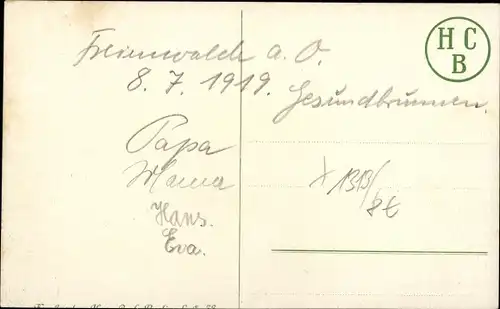 Freienwalde a. O.
8. 7. 1919.
Gesundbrunnen.
Papa
Mama
Hans.
Eva.
H C
B
X 1313/
8€